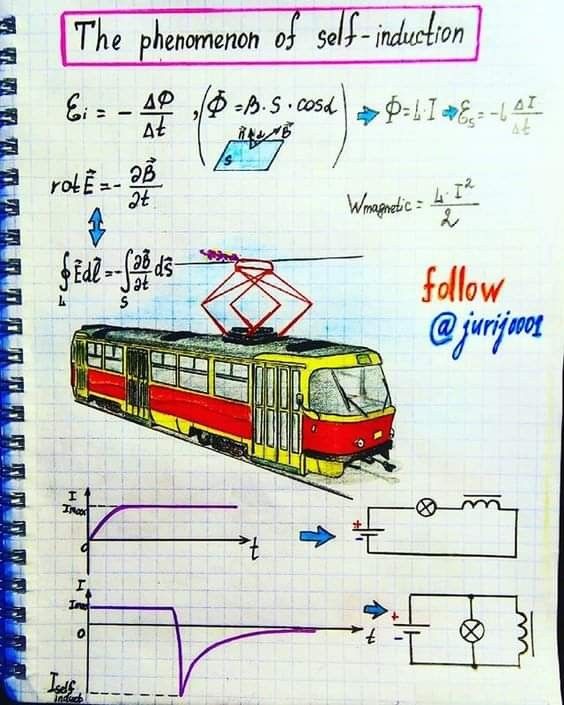 The phenomenon of self-induction
Ɛi = - ΔΦ/Δt , (Φ = B·S·cosα) ➡ Φ = L·I ➡ Ɛs = -L ΔI/Δt
n⃗ α B⃗
S
rot E⃗ = - ∂B⃗/∂t
Wmagnetic = L·I²/2
∮L E⃗dl⃗ = -∫S ∂B⃗/∂t ds⃗
follow
@jurij0001
I
Imax
0
t
+
-
I
Imax
0
t
+
-
Iself induct